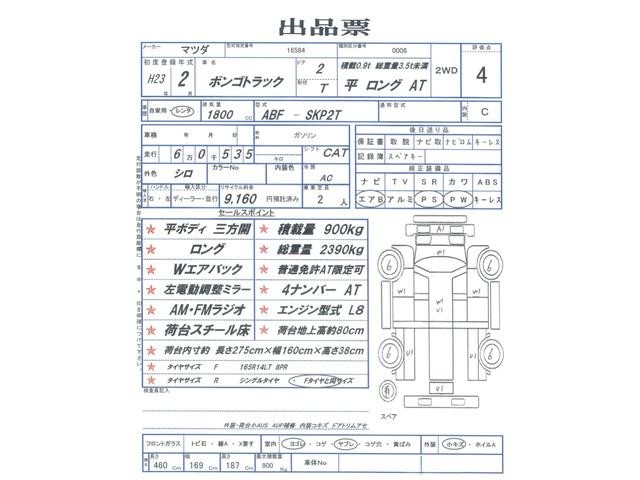 出品票
メーカー マツダ 型式指定番号 16584 類別区分番号 0006 評価点
初度登録年式 車名 ドア 2 積載0.9t 総重量3.5t未満 2WD 4
H23年 2月 ボンゴトラック 形状 T 平 ロング AT
車歴 自家用・レンタ 排気量 1800 CC 型式 ABF - SKP2T 通称型式 内装 C
車検 年 月 日 燃料 ガソリン
走行 6万0千535 キロ シフト CAT
外色 シロ カラーNo 内装色 冷房 AC
ハンドル 右・左 輸入区分 ディーラー・並行 リサイクル料金 9,160 円預託済み 乗車定員 2 人
後日送り品
保証書 取説 ナビ取 ナビロム キーレス
記録簿 スペアキー
純正装備品
ナビ TV SR カワ ABS
エアB アルミ PS PW キーレス
セールスポイント
平ボディ 三方開 積載量 900kg
ロング 総重量 2390kg
Wエアバック 普通免許AT限定可
左電動調整ミラー 4ナンバー AT
AM・FMラジオ エンジン型式 L8
荷台スチール床 荷台地上高約80cm
荷台内寸約 長さ275cm×幅160cm×高さ38cm
タイヤサイズ F 165R14LT 8PR
タイヤサイズ R シングルタイヤ ・Fタイヤと同サイズ
検査員記入
A1
W1
V1
6
スペア
外装・荷台小AUS AUP補修 内装コキズ ドアトリムアセ
フロントガラス トビ石・線A・X要す 室内 ヨゴレ・コゲ・ヤブレ・コゲ穴・黄ばみ 外装 小キズ・ホイルA
長さ 460 Cm 幅 169 Cm 高さ 187 Cm 最大積載量 900 Kg 車体No